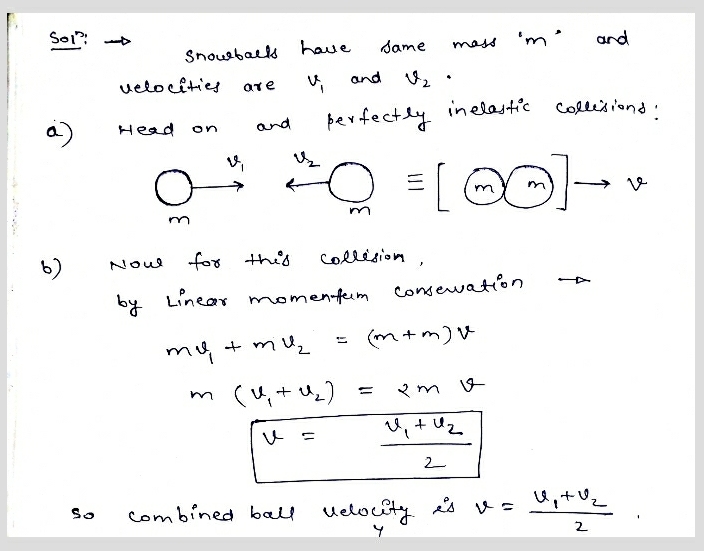 Solⁿ: → Snowballs have same mass 'm' and
velocities are v₁ and v₂ .
a) Head on and perfectly inelastic collisions:
v₁ v₂ ≡ [ m m ] → v
m m
b) Now for this collision,
by Linear momentum conservation →
mv₁ + mv₂ = (m+m)v
m (v₁+v₂) = 2m v
v = v₁+v₂ / 2
so combined ball velocity is v = v₁+v₂ / 2 .